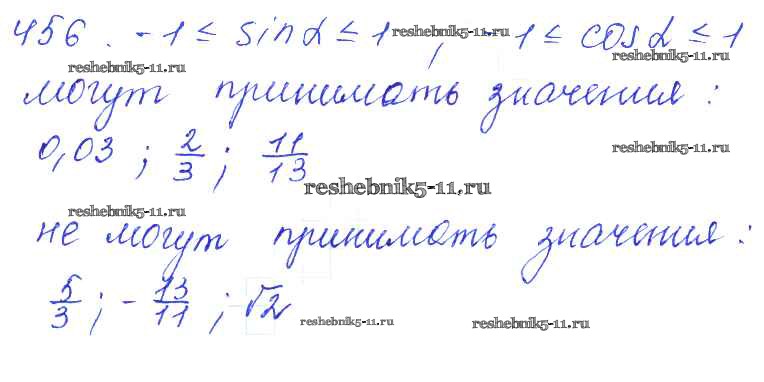 456. -1 ≤ sinα ≤ 1, -1 ≤ cosα ≤ 1
reshebnik5-11.ru
reshebnik5-11.ru
reshebnik5-11.ru
могут принимать значения:
0,03; 2/3; 11/13
reshebnik5-11.ru
reshebnik5-11.ru
reshebnik5-11.ru
не могут принимать значения:
5/3; -13/11; √2
reshebnik5-11.ru
reshebnik5-11.ru